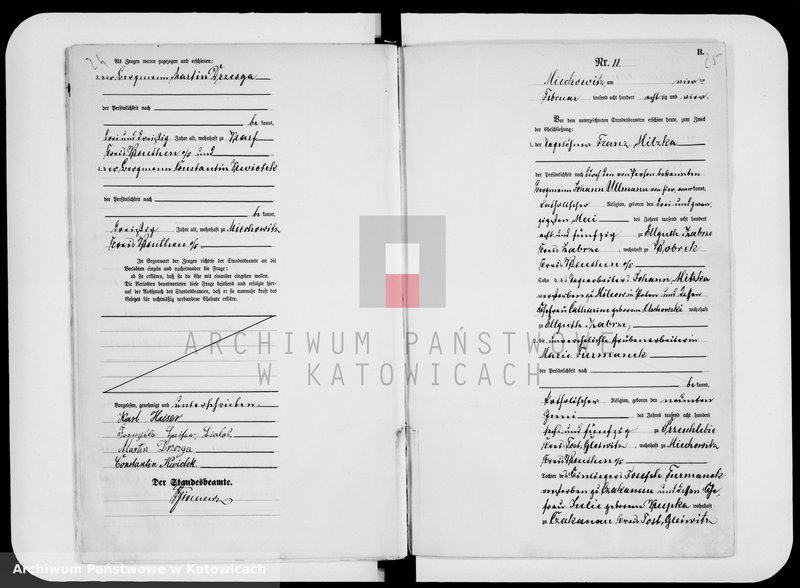 24
Als Zeugen waren zugezogen und erschienen:
3. der Bergmann Martin Drzesga
der Persönlichkeit nach
be kannt,
dreiunddreißig Jahre alt, wohnhaft zu Karf
Kreis Beuthen o/s und
4. der Bergmann Constantin Kwiotek
der Persönlichkeit nach
be kannt,
dreißig Jahre alt, wohnhaft zu Miechowitz
Kreis Beuthen o/s
In Gegenwart der Zeugen richtete der Standesbeamte an die
Verlobten einzeln und nacheinander die Frage:
ob sie erklären, daß sie die Ehe mit einander eingehen wollen.
Die Verlobten beantworteten diese Frage bejahend und erfolgte hier-
auf der Ausspruch des Standesbeamten, daß er sie nunmehr kraft des
Gesetzes für rechtmäßig verbundene Eheleute erkläre.
Vorgelesen, genehmigt und unterschrieben.
Karl Kaiser
Martin Drzesga
Constantin Kwiotek
Der Standesbeamte.
B.
25
Nr. 11
Miechowitz, am vier ten
Februar tausend acht hundert acht zig und vier.
Vor dem unterzeichneten Standesbeamten erschien heute, zum Zweck
der Eheschließung:
1. der Tagelöhner Franz Mitzka
der Persönlichkeit nach durch den von Person bekannten
Bergmann Johann Ullmann von hier, anerkannt,
katholischer Religion, geboren den drei und zwan-
zigsten Mai des Jahres tausend acht hundert
acht und fünfzig zu Zabrze
Kreis Zabrze, wohnhaft zu Bobrek
Kreis Beuthen o/s
Sohn des Tagearbeiters Johann Mitzka
verstorben zu in Polen und dessen
Ehefrau Catharina geborenen Klechowski wohnhaft
zu Zabrze,
2. die unverehelichte Grubenarbeiterin
Marie Furmanek
der Persönlichkeit nach
be kannt,
katholischer Religion, geboren den neunten
Juni des Jahres tausend acht hundert
sechs und fünfzig zu Przechlebie
Kreis Tost, Gleiwitz, wohnhaft zu Miechowitz
Kreis Beuthen o/s
Tochter des Einliegers Joseph Furmanek
verstorben zu Czakanau und dessen Ehe-
frau Julie geborenen Kupka wohnhaft
zu Czakanau Kreis Tost, Gleiwitz
ARCHIWUM PAŃSTWOWE
W KATOWICACH
Archiwum Państwowe w Katowicach